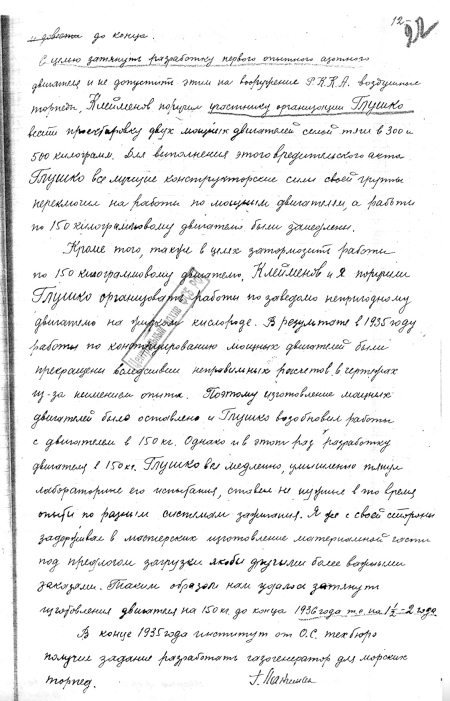 12-
22
и довата до конца.
С целью затянуть разработку первого опытного азотного
двигателя и не допустить этим на вооружение Р.К.К.А. воздушные
торпеды, Клейменов поручил участнику организации Глушко
вести проектировку двух мощных двигателей силой тяги в 300 и
500 килограмм. Для выполнения этого вредительского акта
Глушко все лучшие конструкторские силы своей группы
переключил на работы по мощным двигателям, а работы
по 150 килограммовому двигателю были замедлены.
Кроме того, также в целях затормозить работы
по 150 килограммовому двигателю, Клейменов и я поручили
Глушко организовать работы по заведомо непригодному
двигателю на жидком кислороде. В результате в 1935 году
работы по конструированию мощных двигателей были
прекращены вследствии неправильных расчетов, в чертежах
из-за неимением опыта. Поэтому изготовление мощных
двигателей было оставлено и Глушко возобновил работы
с двигателем в 150 кг. Однако и в этот раз разработку
двигателя в 150 кг. Глушко вел медленно, умышленно тянул
лабораторные его испытания, ставил не нужные в то время
опыты по разным системам зажигания. Я же с своей стороны
задерживал в мастерских изготовление материальной части
под предлогом загрузки якобы другими более важными
заказами. Таким образом нам удалось затянуть
изготовления двигателя на 150 кг. до конца 1936 года т.е. на 1½-2 года.
В конце 1935 года институт от О.С. техбюро
получил задание разработать газогенератор для морских
торпед. Г. Лангемак
Центральный архив ФСБ РФ